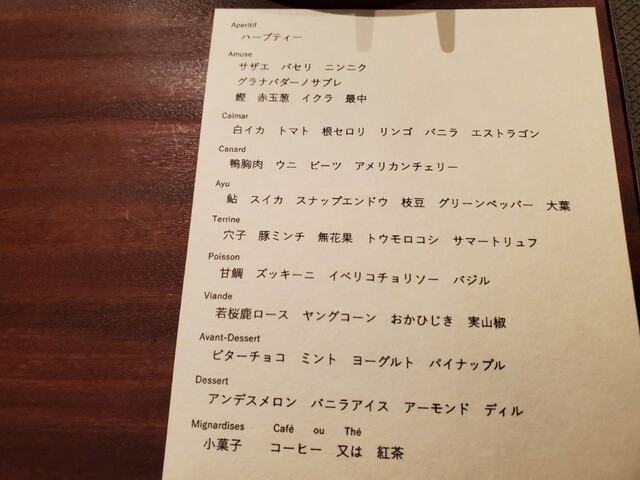 Aperitif
ハーブティー
Amuse
サザエ　パセリ　ニンニク
グラナパダーノサブレ
鰹　赤玉葱　イクラ　最中
Calmar
白イカ　トマト　根セロリ　リンゴ　バニラ　エストラゴン
Canard
鴨胸肉　ウニ　ビーツ　アメリカンチェリー
Ayu
鮎　スイカ　スナップエンドウ　枝豆　グリーンペッパー　大葉
Terrine
穴子　豚ミンチ　無花果　トウモロコシ　サマートリュフ
Poisson
甘鯛　ズッキーニ　イベリコチョリソー　バジル
Viande
若桜鹿ロース　ヤングコーン　おかひじき　実山椒
Avant-Dessert
ビターチョコ　ミント　ヨーグルト　パイナップル
Dessert
アンデスメロン　バニラアイス　アーモンド　ディル
Mignardises　Café　ou　Thé
小菓子　コーヒー　又は　紅茶